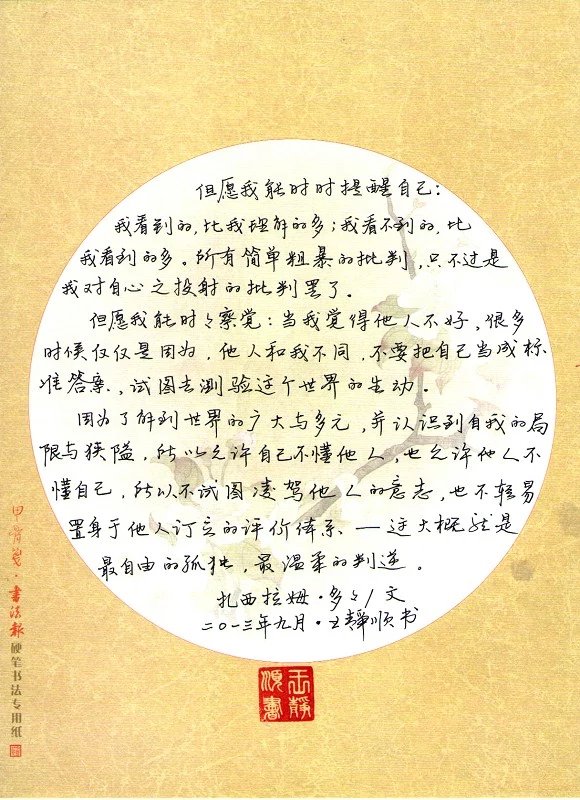 但愿我能时时提醒自己：
我看到的，比我理解的多；我看不到的，比
我看到的多。所有简单粗暴的批判，只不过是
我对自心之投射的批判罢了。
但愿我能时々察觉：当我觉得他人不好，很多
时候仅仅是因为，他人和我不同，不要把自己当成标
准答案，试图去测验这个世界的生动。
因为了解到世界的广大与多元，并认识到自我的局
限与狭隘，所以允许自己不懂他人，也允许他人不
懂自己，所以不试图凌驾他人的意志，也不轻易
置身于他人订立的评价体系——这大概就是
最自由的孤独，最温柔的判逆。
扎西拉姆·多多/文
二〇一三年九月·王静顺书
王静
顺书
书法报
硬笔书法专用纸